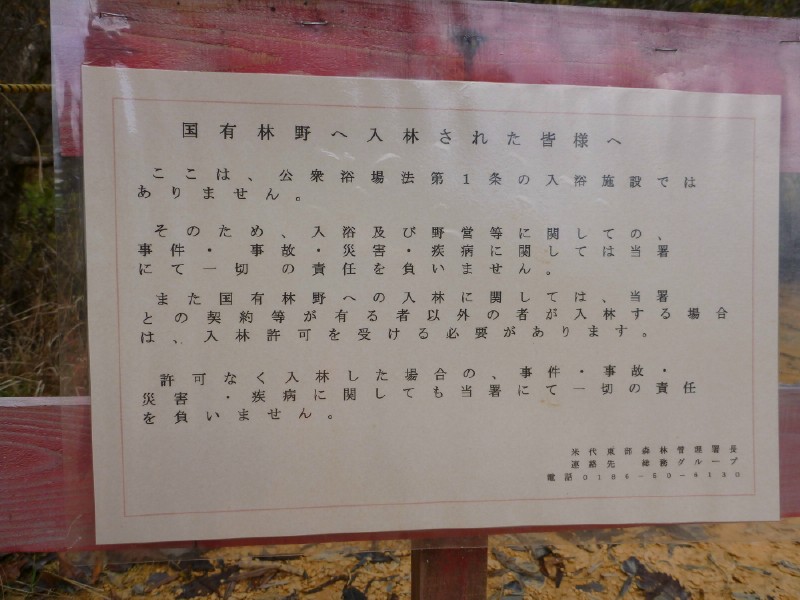 国有林野へ入林された皆様へ
ここは、公衆浴場法第1条の入浴施設では
ありません。
そのため、入浴及び野営等に関しての、
事件・事故・災害・疾病に関しては当署
にて一切の責任を負いません。
また国有林野への入林に関しては、当署
との契約等が有る者以外の者が入林する場合
は、入林許可を受ける必要があります。
許可なく入林した場合の、事件・事故・
災害・疾病に関しても当署にて一切の責任
を負いません。
米代東部森林管理署長
連絡先 総務グループ
電話0186-50-6130